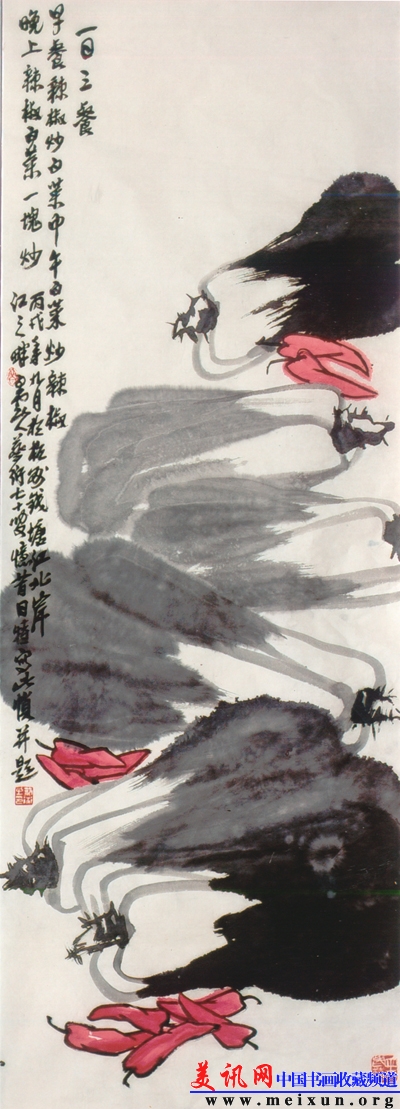 一日三餐
早餐辣椒炒白菜中午白菜炒辣椒
晚上辣椒白菜一塊炒
丙戌年九月於杭州錢塘江北岸
江之畔 人 七十叟憶昔日 寫此 并題
美讯网 中国书画收藏频道
www.meixun.org